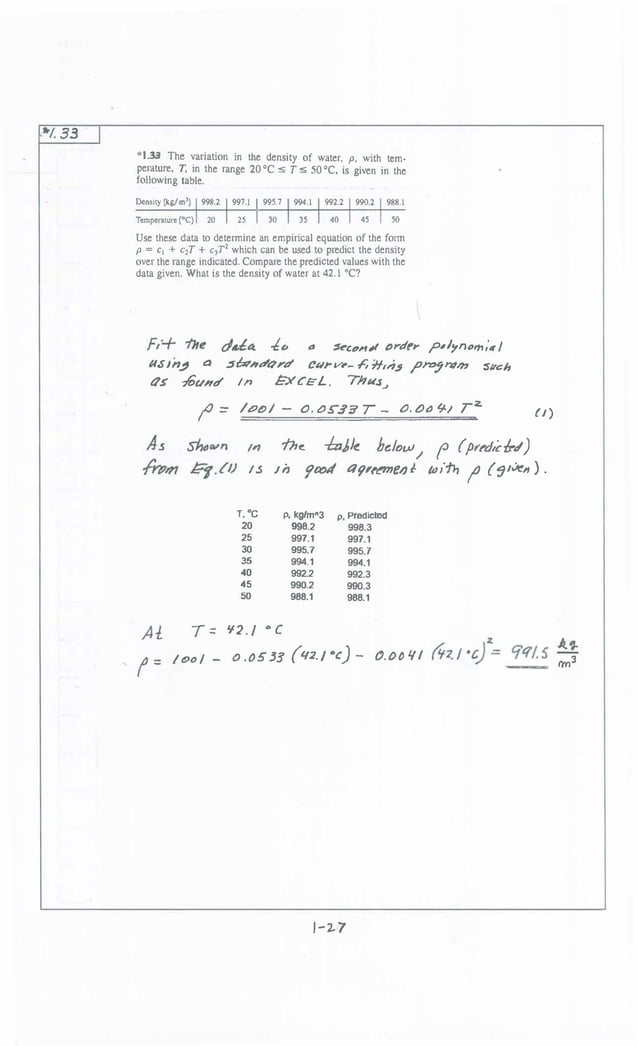 *1.33
*1.33 The variation in the density of water, ρ, with tem-
perature, T, in the range 20 °C ≤ T ≤ 50 °C, is given in the
following table.
Density (kg/m³) 998.2 997.1 995.7 994.1 992.2 990.2 988.1
Temperature (°C) 20 25 30 35 40 45 50
Use these data to determine an empirical equation of the form
ρ = c₁ + c₂T + c₃T² which can be used to predict the density
over the range indicated. Compare the predicted values with the
data given. What is the density of water at 42.1 °C?
Fit the data to a second order polynomial
using a standard curve-fitting program such
as found in EXCEL. Thus,
ρ = 1001 - 0.0533 T - 0.0041 T² (1)
As shown in the table below, ρ (predicted)
from Eq.(1) is in good agreement with ρ (given).
T, °C ρ, kg/m^3 ρ, Predicted
20 998.2 998.3
25 997.1 997.1
30 995.7 995.7
35 994.1 994.1
40 992.2 992.3
45 990.2 990.3
50 988.1 988.1
At T = 42.1 °C
ρ = 1001 - 0.0533 (42.1°C) - 0.0041 (42.1°C)² = 991.5 kg/m³
1-27